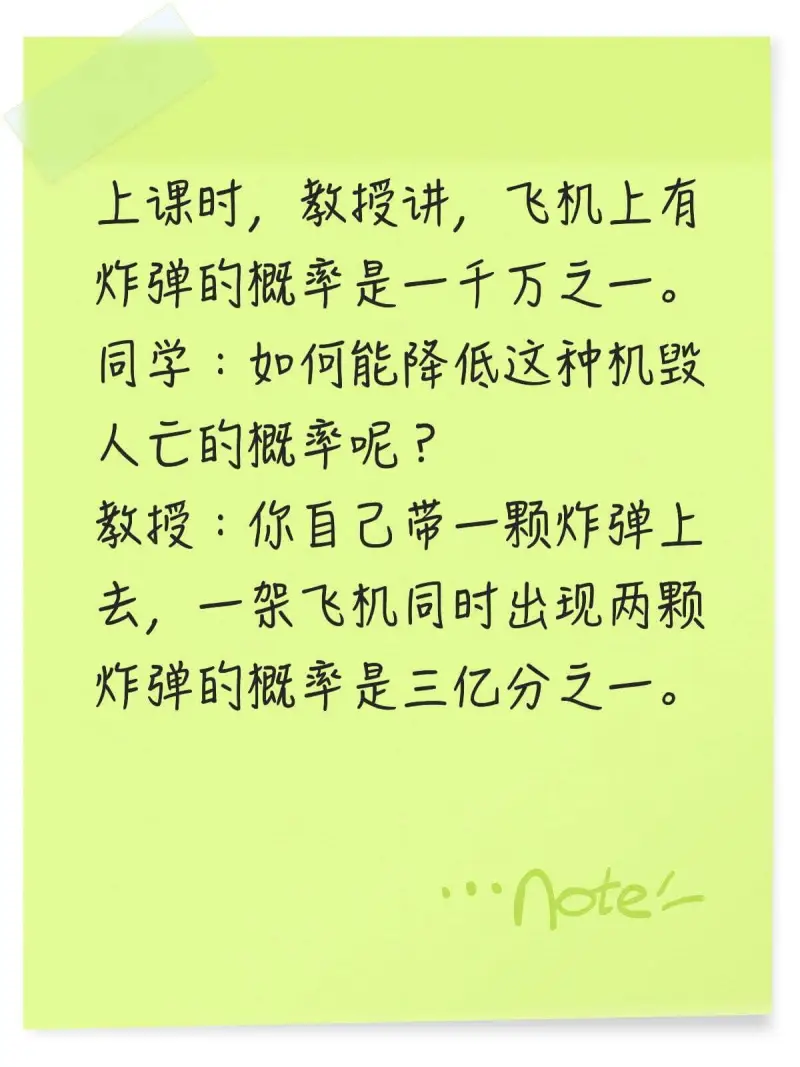 上课时，教授讲，飞机上有
炸弹的概率是一千万之一。
同学：如何能降低这种机毁
人亡的概率呢？
教授：你自己带一颗炸弹上
去，一架飞机同时出现两颗
炸弹的概率是三亿分之一。
...note